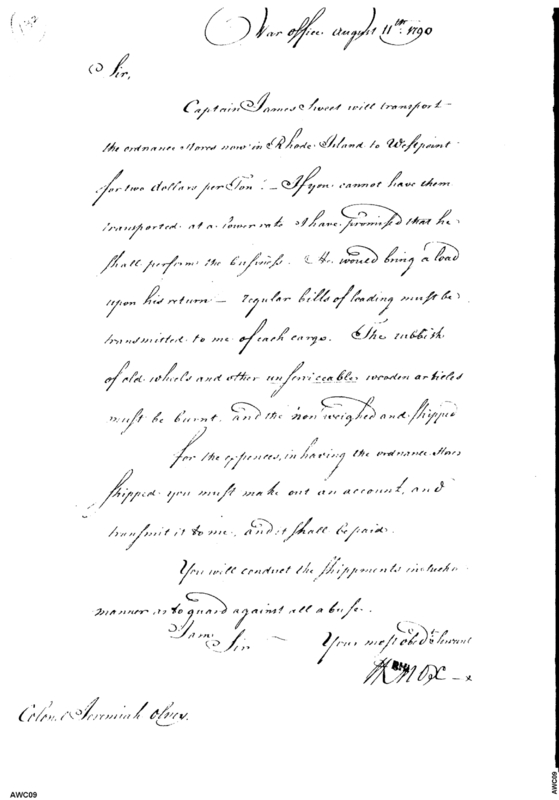 War office August 11th 1790
Sir,
Captain James Sweet will transport
the ordnance stores now in Rhode Island to Westpoint
for two dollars per Ton. — If you cannot have them
transported at a lower rate I have promised that he
shall perform the business. He would bring a load
upon his return — regular bills of loading must be
transmitted to me of each cargo. The rubbish
of old wheels and other unserviceable wooden articles
must be burnt, and the iron weighed and shipped
for the expences, in having the ordnance stores
shipped you must make out an account, and
transmit it to me, and it shall be paid.
You will conduct the shippments in such a
manner as to guard against all abuse.
I am
Sir Your most obedt servant
HKnox
Colonel Jeremiah Olney.
AWC09
AWC09